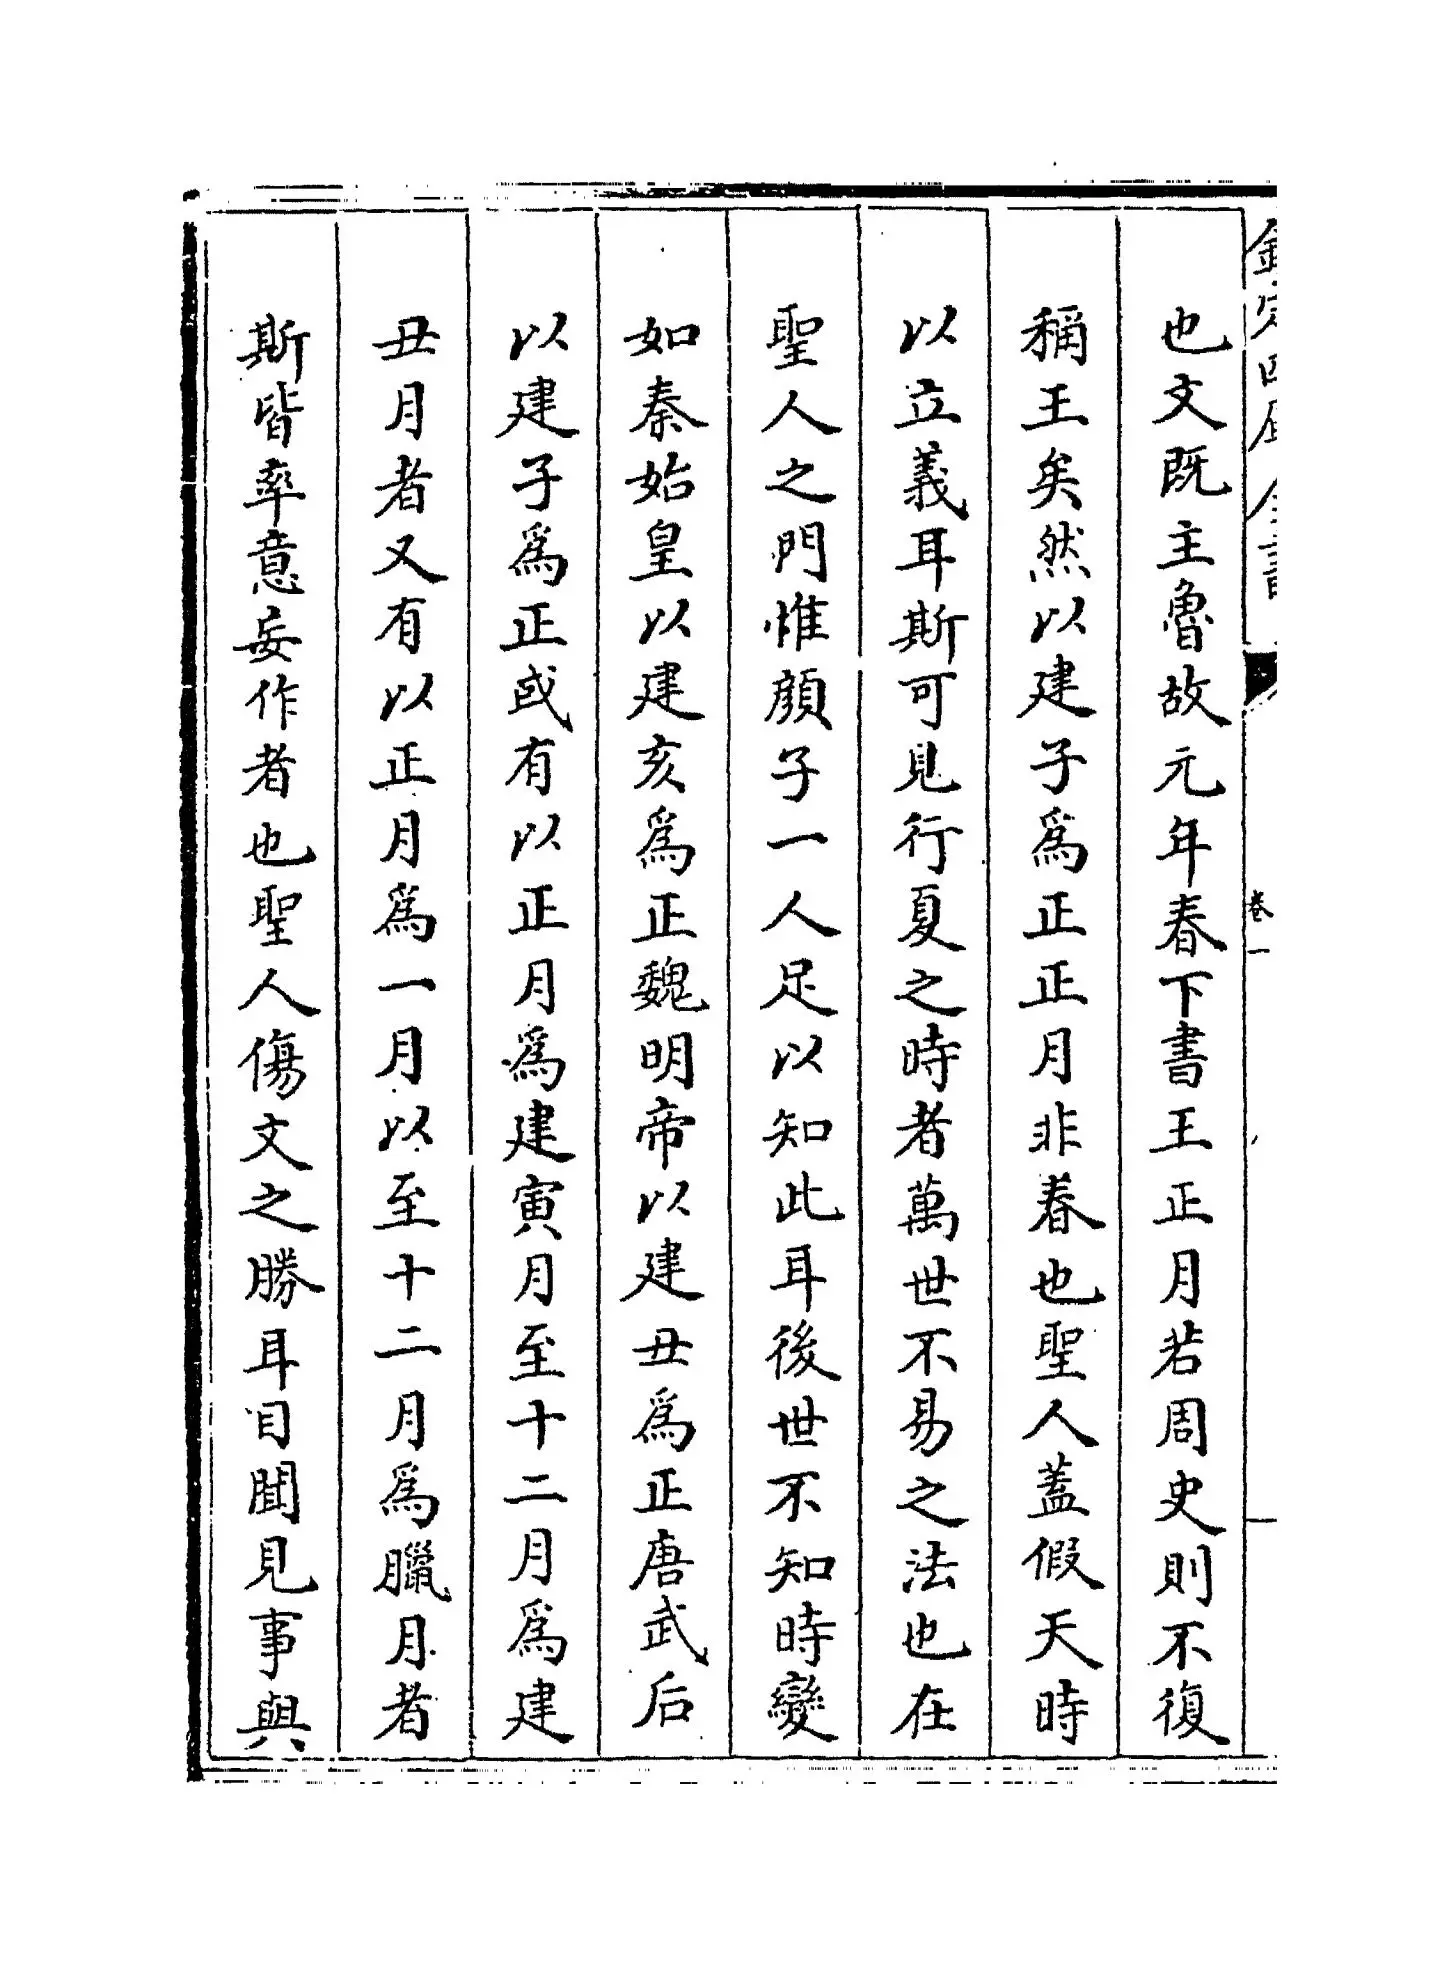 欽定四庫全書
卷一
也文既主魯故元年春下書王正月若周史則不復
稱王矣然以建子為正正月非春也聖人蓋假天時
以立義耳斯可見行夏之時者萬世不易之法也在
聖人之門惟顔子一人足以知此耳後世不知時變
如秦始皇以建亥為正魏明帝以建丑為正唐武后
以建子為正或有以正月為建寅月至十二月為建
丑月者又有以正月為一月以至十二月為臘月者
斯皆率意妄作者也聖人傷文之勝耳目聞見事與